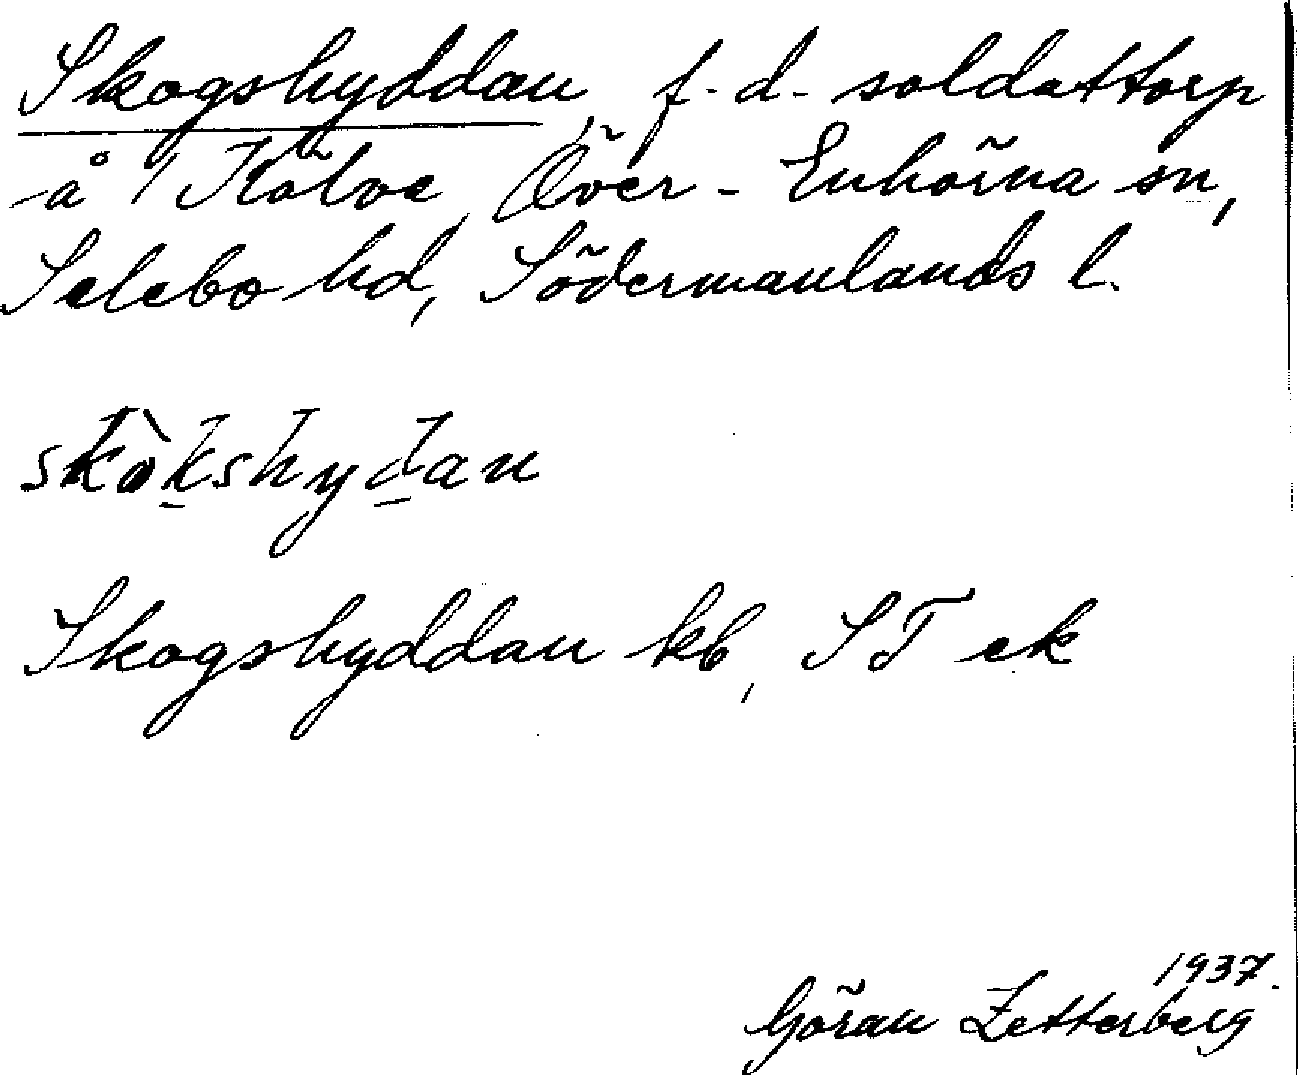 Skogshyddan, f.d. soldattorp
å Kölve, Över-Enhörna sn,
Selebo hd, Södermanlands l.
skòkshydan
Skogshyddan kb, ST ek
1937.
Göran Zetterberg